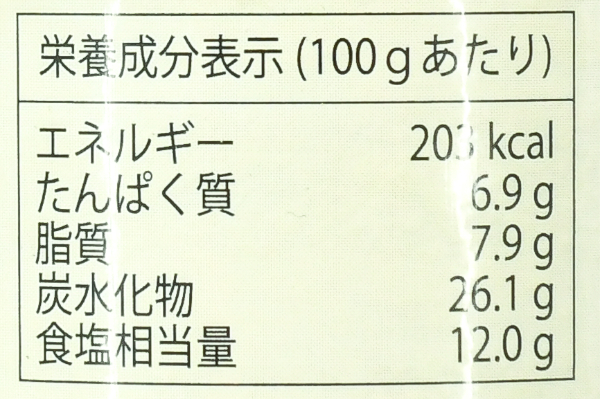 栄養成分表示 (100gあたり)
エネルギー 203 kcal
たんぱく質 6.9 g
脂質 7.9 g
炭水化物 26.1 g
食塩相当量 12.0 g